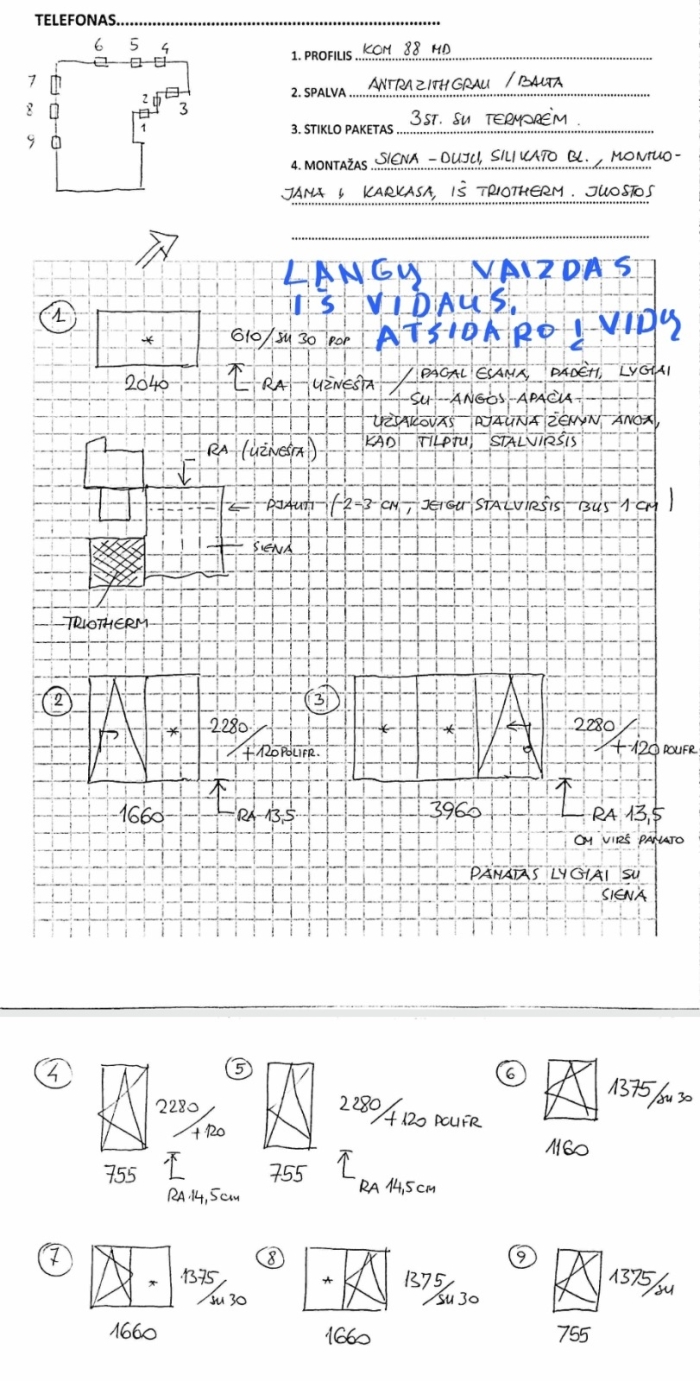 TELEFONAS
6 5 4
7
8
9
2
1
3
1. PROFILIS KOM 88 MD
2. SPALVA ANTRAZITHGRAU / BALTA
3. STIKLO PAKETAS 3 ST. SU TERMORĖM.
4. MONTAŽAS SIENA - DUJŲ, SILIKATO BL., MONTUO-
JAMA Į KARKASĄ, IŠ TRIOTHERM. JUOSTOS
LANGŲ VAIZDAS
IŠ VIDAUS,
ATSIDARO Į VIDŲ
1
*
610/SU 30 POP
2040
RA UŽNEŠTA / PAGAL ESAMĄ, PADĖTI, LYGIAI
SU ANGOS APAČIA
UŽSAKOVAS PJAUNA ŽEMYN ANGĄ,
KAD TILPTŲ STALVIRŠIS
RA (UŽNEŠTA)
PJAUTI (-2-3 CM, JEIGU STALVIRŠIS BUS 1 CM)
SIENA
TRIOTHERM
2
*
2280
/+120 POLIFR.
1660
RA 13,5
3
* *
2280
/+120 POLIFR
3960
RA 13,5
CM VIRŠ PAMATO
PAMATAS LYGIAI SU
SIENA
4
2280
/+120
755
RA 14,5cm
5
2280
/+120 POLIFR
755
RA 14,5cm
6
1375/SU 30
1160
7
*
1375
/SU 30
1660
8
*
1375
/SU 30
1660
9
1375/SU
755